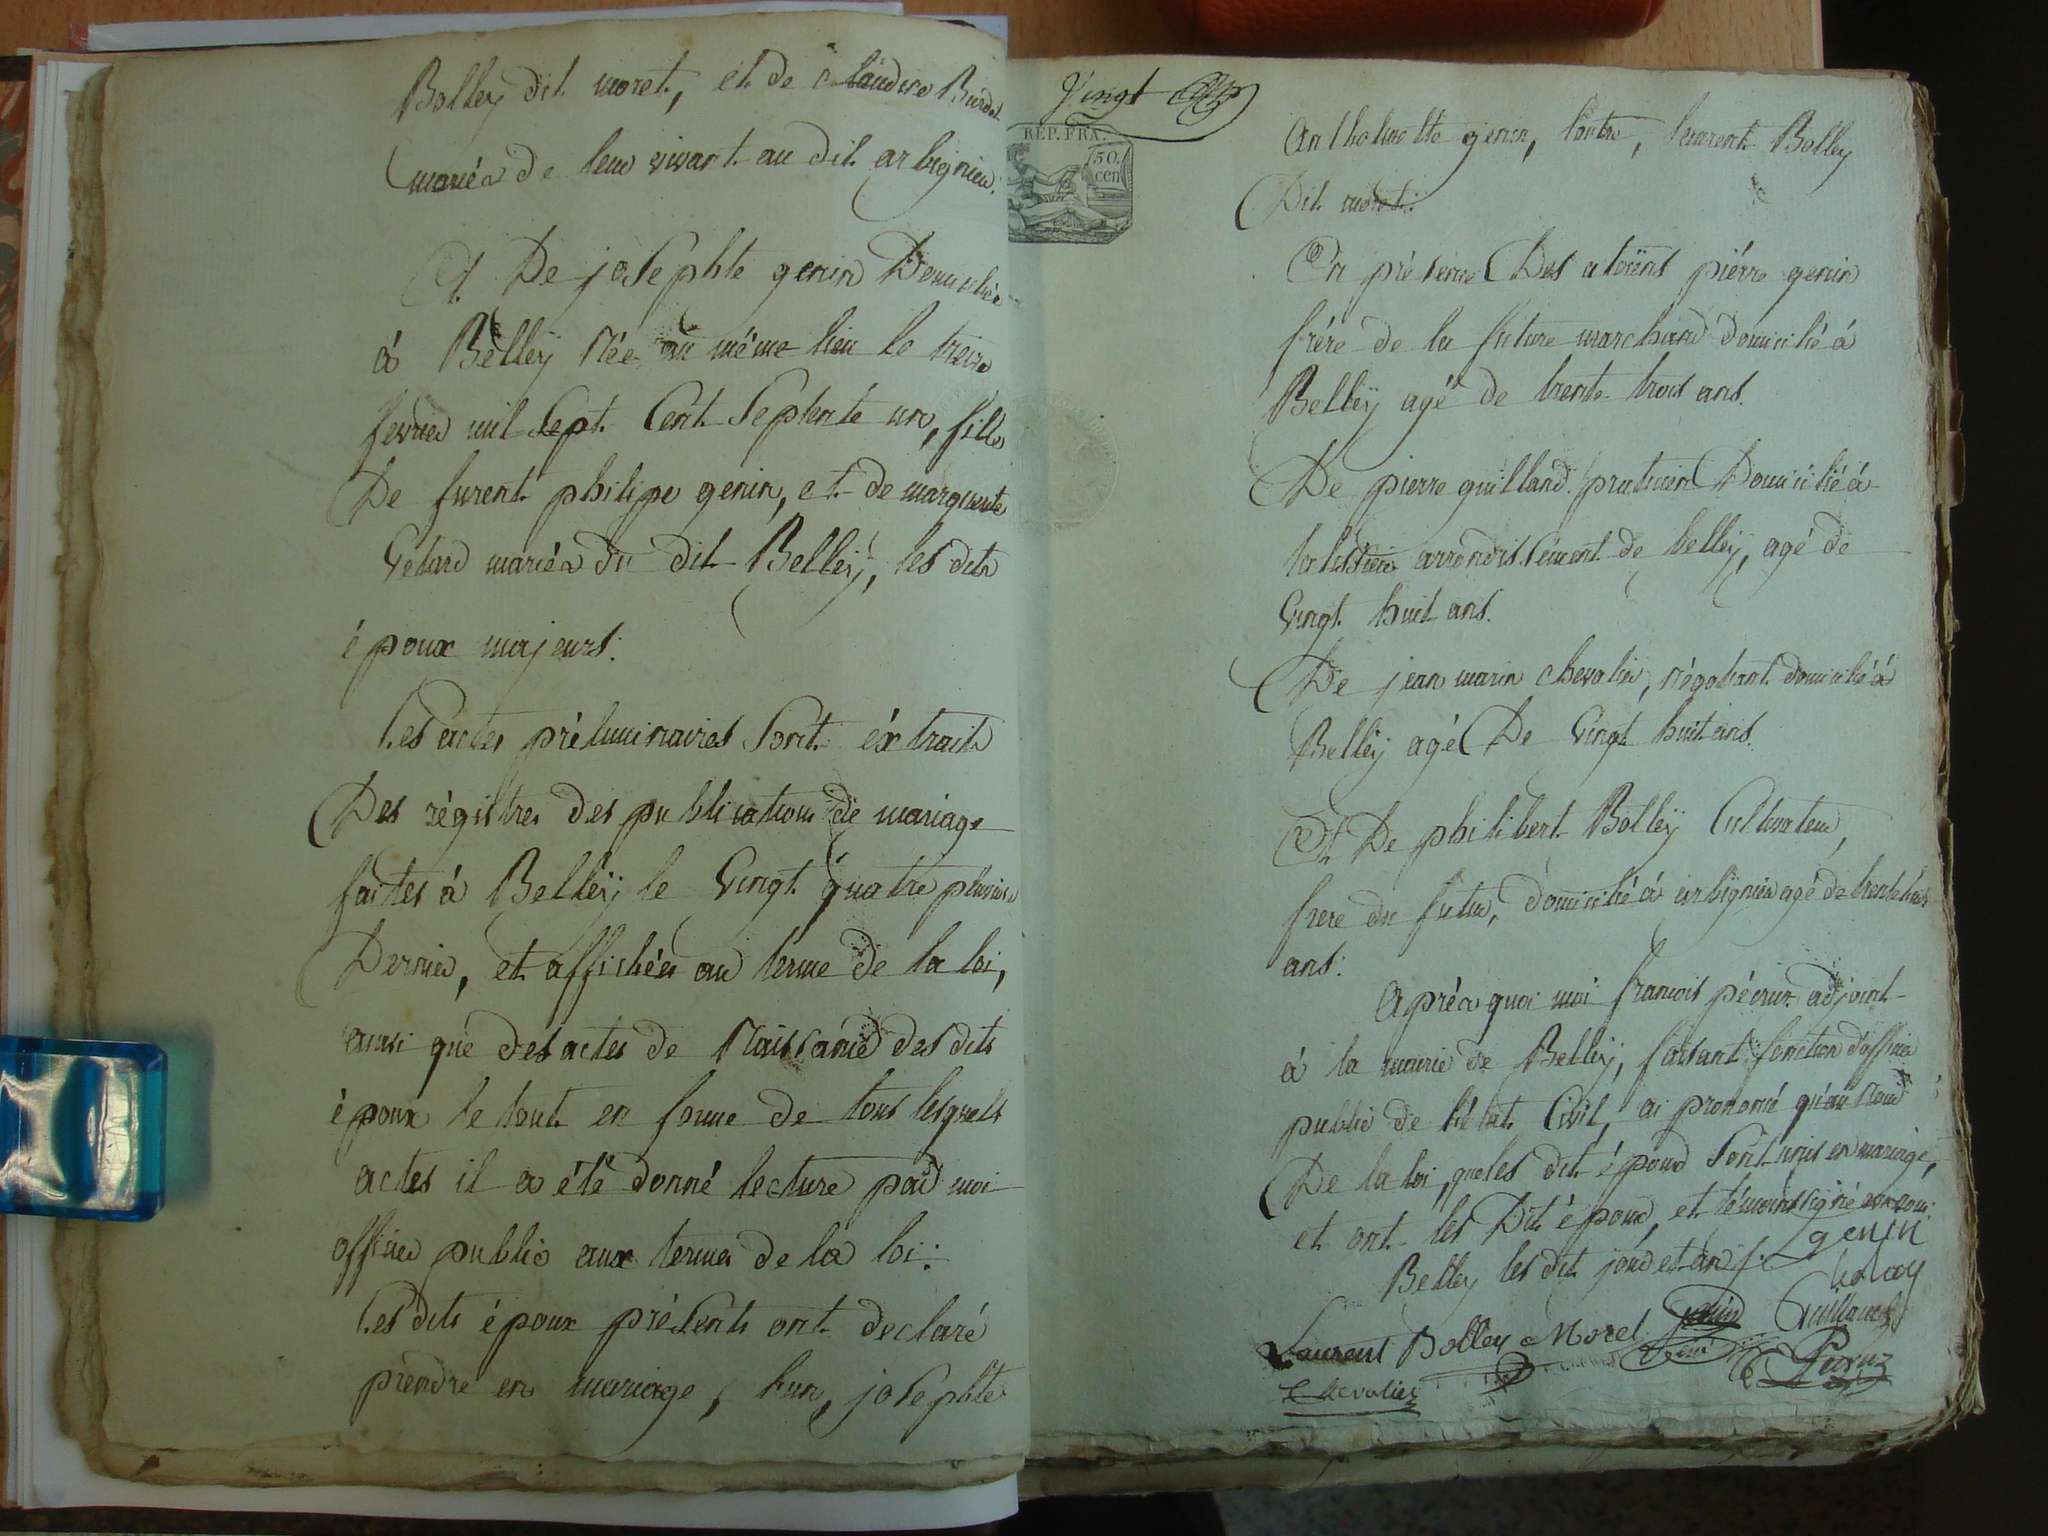 Bolley dit moret, et de Claudine Burdet
mariés de leur vivant au dit arbignieu.
Et De josephte genin Domiciliée
à Belleÿ née au même lieu le treize
fevrier mil sept Cent Septente un, fille
De furent philipe genin, et de marguerite
Vetard mariés du dit Belleÿ, les dits
époux majeurs.
Les actes préluminaires sont éxtraits
Des régistres des publications de mariage
faites à Belleÿ le Vingt quatre pluviose
Dernier, et affichées au terme de la loi,
ainsi que des actes de Naissance des dits
époux le tout en forme de tous lesquels
actes il a été donné lecture par moi
officier public aux termes de la loi:
Les dits époux présents ont declaré
prendre en mariage, l'un, josephte
Vingt
REP. FRA.
50.
cen
Antholmette genin, l'autre, laurent Bolley
Dit moret:
En présence Des temoins piérre genin
frére de la future marchand domicilié à
Belleÿ agé de trente trois ans.
De pierre guilland praticien Domicilié à
arrondissement de belleÿ, agé de
Vingt huit ans.
De jean marin chevalier, négotiant domicilié à
Belleÿ agé De Vingt huit ans.
Et De philibert Bolleÿ Cultivateur,
frere du futur, domicilié à arbignieu agé de trente trois
ans:
Aprés quoi moi francois pécruz adjoint
à la mairie de Belleÿ, faisant fonction d'officier
public de l'état Civil, ai prononcé qu'au Nom
De la loi, que les dit époux sont unis en mariage,
et ont les Dit époux, et témoins signé avec moi.
Belley les dit jour et an
genin
Bolley
Laurent Bolley Moret genin Guilland
Chevalier
Pecruz